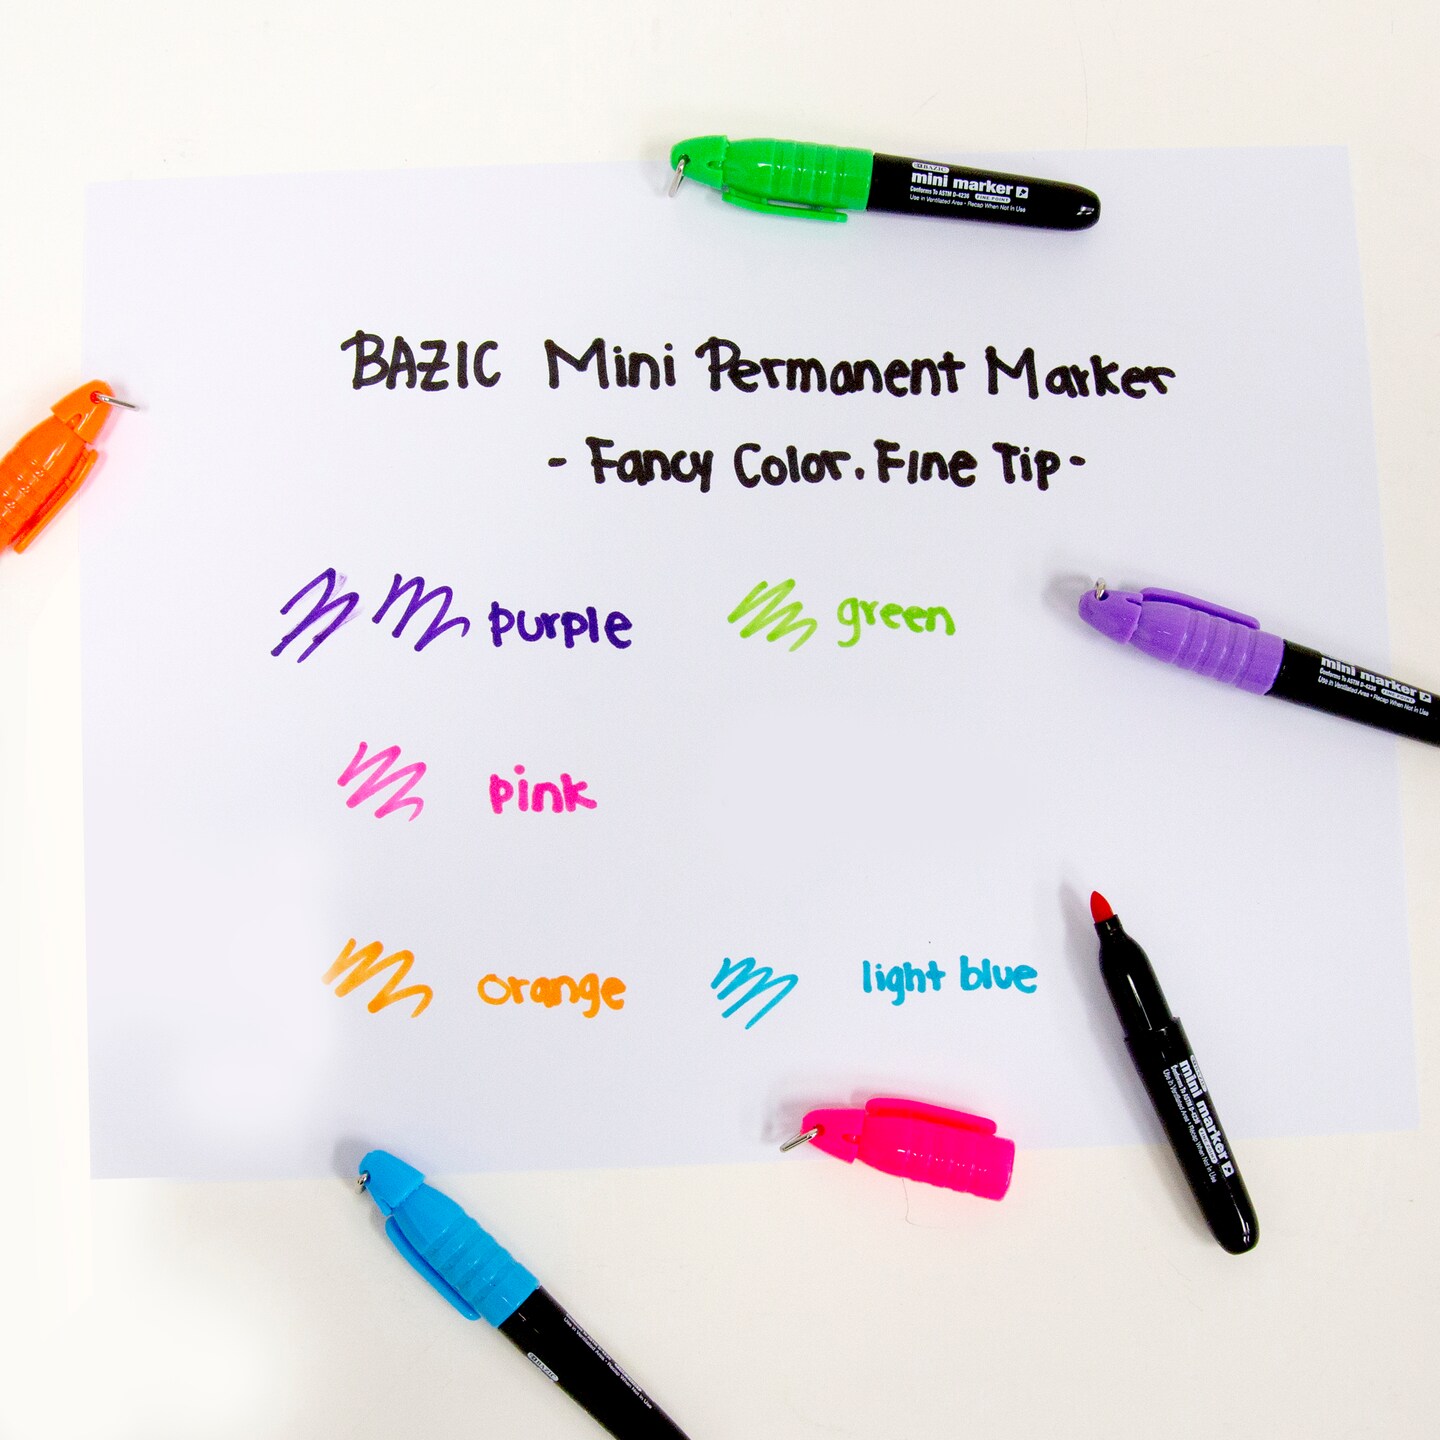 BAZIC
mini marker
Conforms To ASTM D-4236 FINE POINT
Use in Ventilated Area • Recap When Not In Use
BAZIC Mini Permanent Marker
- Fancy Color. Fine Tip -
purple
green
mini marker
Conforms To ASTM D-4236 FINE POINT
Use in Ventilated Area • Recap When Not In Use
pink
orange
light blue
mini marker
Conforms To ASTM D-4236 FINE POINT
Use in Ventilated Area • Recap When Not In Use
Use in Ventilated Area • Recap When Not In Use
BAZIC